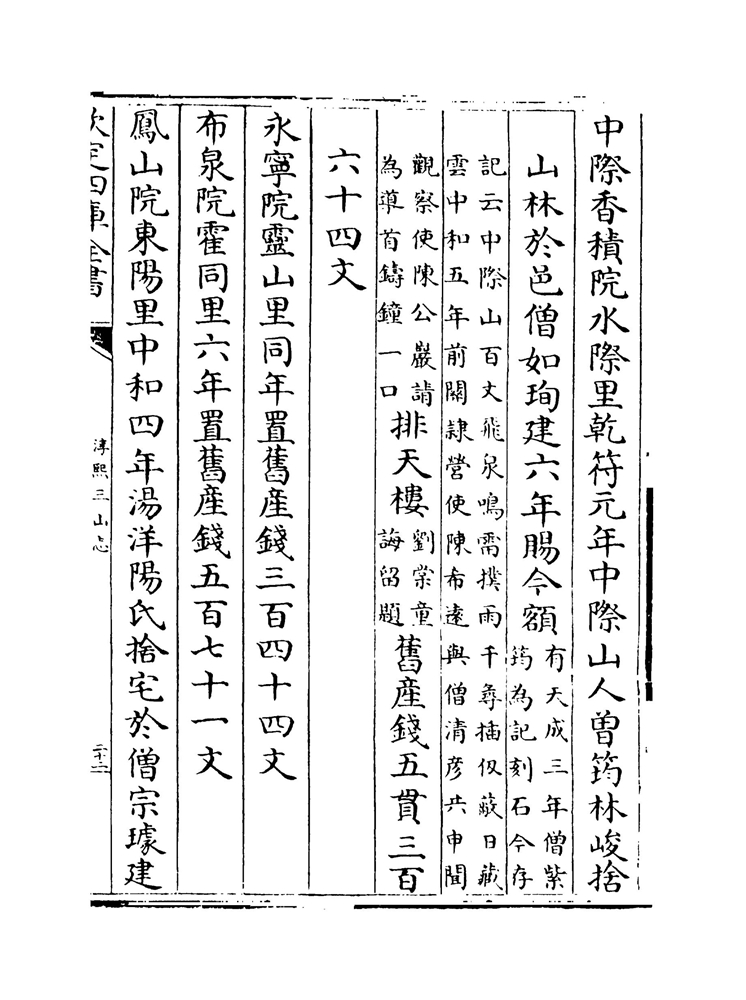 中際香積院水際里乾符元年中際山人曾筠林峻捨
山林於邑僧如珣建六年賜今額有天成三年僧紫
筠為記刻石今存
記云中際山百丈飛泉鳴需撲雨千尋插伋蔽日藏
雲中和五年前關隷營使陳布遠與僧清彥共申聞
觀察使陳公巖請
為導首鑄鐘一口排天樓劉棠童
誨留題舊産錢五貫三百
六十四文
永寧院靈山里同年置舊産錢三百四十四文
布泉院霍同里六年置舊産錢五百七十一文
鳳山院東陽里中和四年湯洋陽氏捨宅於僧宗璩建
欽定四庫全書
淳熙三山志